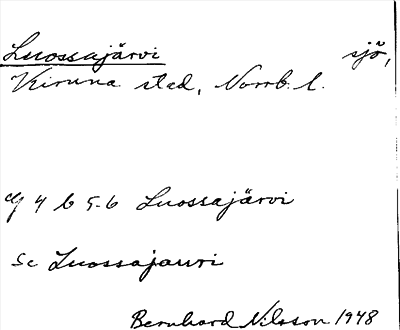 Luossajärvi sjö,
Kiruna stad, Norrb. l.
Gj 4 b 5-6 Luossajärvi
Sc Luossajauri
Bernhard Nilsson 1948